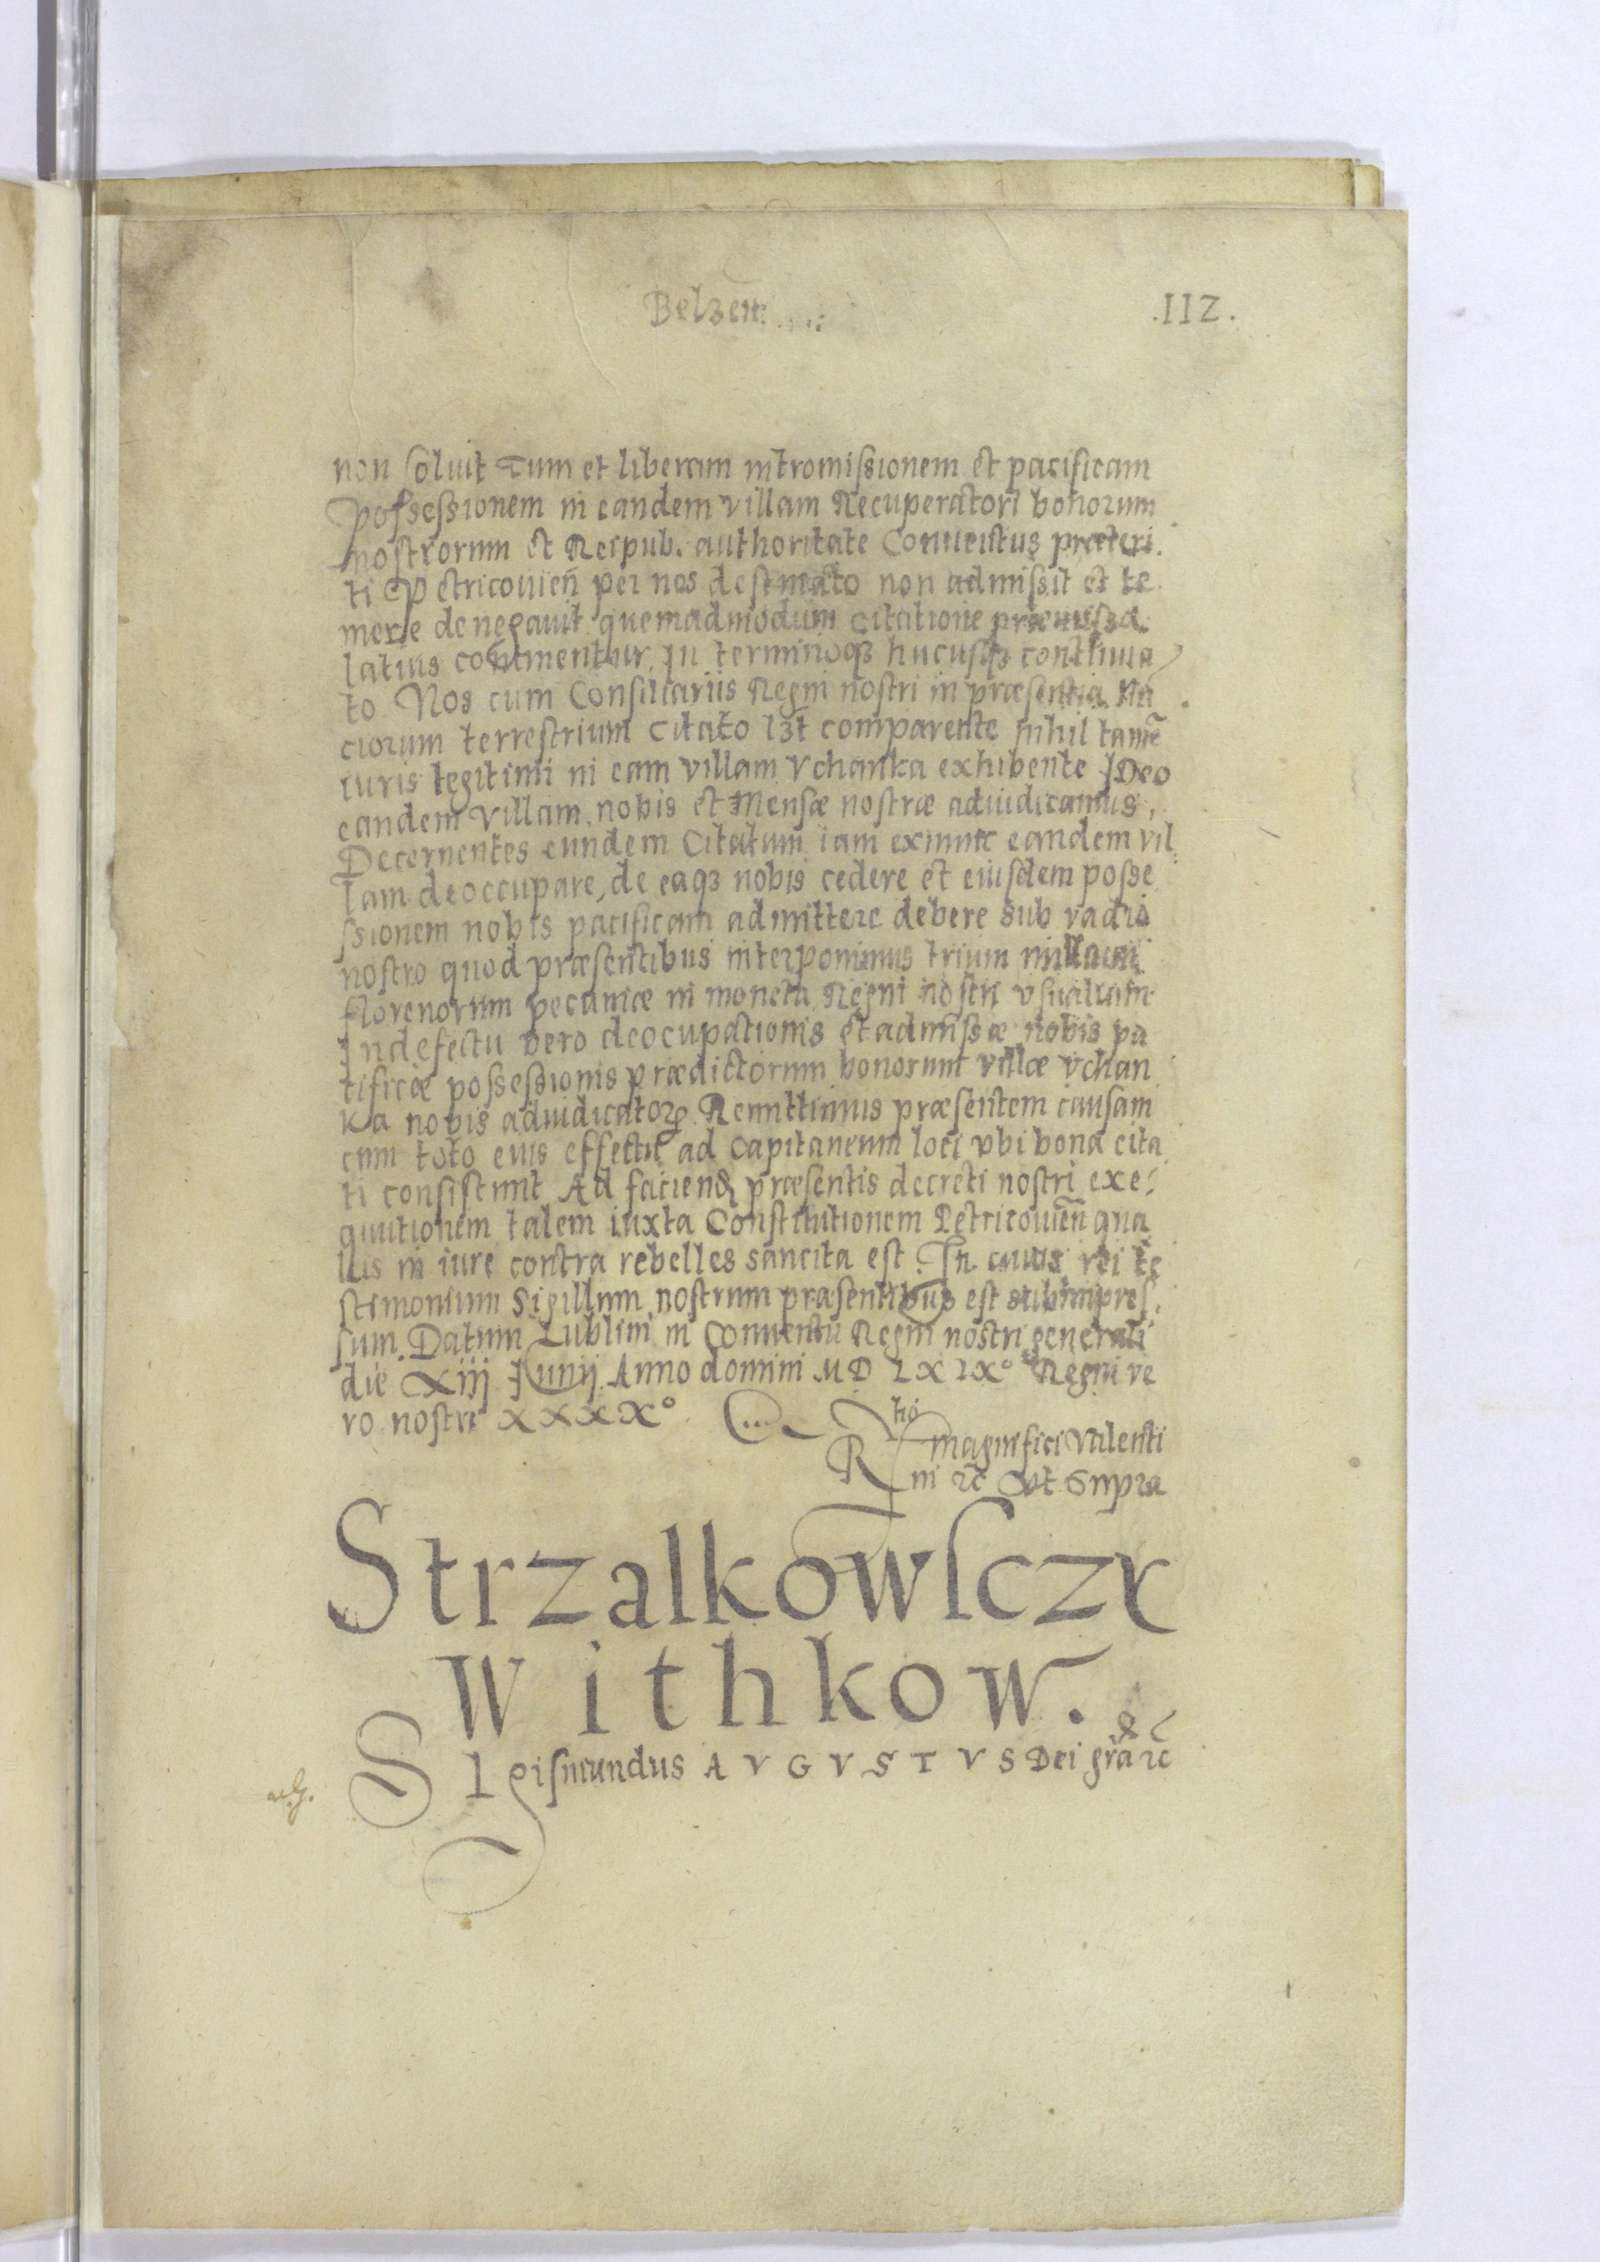 Belzen
.112.
non soluit Tum et liberam intromissionem et pacificam
possessionem in eandem villam Recuperatori bonorum
nostrorum et Reipub. authoritate Conuentus præteri
ti Petricouien̄ per nos destinato non admissit et te
mere denegauit quemadmodum citatione præmissa
latius continentur, In terminoqȝ hucusqȝ continua
to Nos cum Consiliariis Regni nostri in præsentia Nū
ciorum terrestrium Citato lȝt comparente nihil tamē
iuris legitimi in eam villam Vchanka exhibente Ideo
eandem villam nobis et Mensæ nostræ adiudicamus,
Decernentes eundem Citatum iam exnunc eandem vil
lam deoccupare, de eaqȝ nobis cedere et eiusdem posse
ssionem nobis pacificam admittere debere sub vadio
nostro quod præsentibus interponimus trium millium
florenorum pecuniæ in moneta Regni nostri vsualium
Indefectu vero deocupationis et admissæ nobis pa
cificæ possessionis prædictorum bonorum villæ Vchan
ka nobis adiudicatorꝝ Remittimus præsentem causam
cum toto eius effectu ad Capitaneum loci vbi bona cita
ti consistunt Ad faciend præsentis decreti nostri exe
quutionem talem iuxta Constitutionem Petricouien̄ qua
lis in iure contra rebelles sancita est. In cuius rei te
stimonium Sigillum nostrum præsentibus est subimpres,
sum. Datum Lublini in Conuentu Regni nostri generali
die Xiij Iunij Anno domini MD LXIX° Regni ve
ro nostri XXXX°
R tio magnifici Valenti
ni ꝛc Vt Supra
Strzalkowſczy
Withkow.
SIgismundus AVGVSTVS Dei grā ꝛc